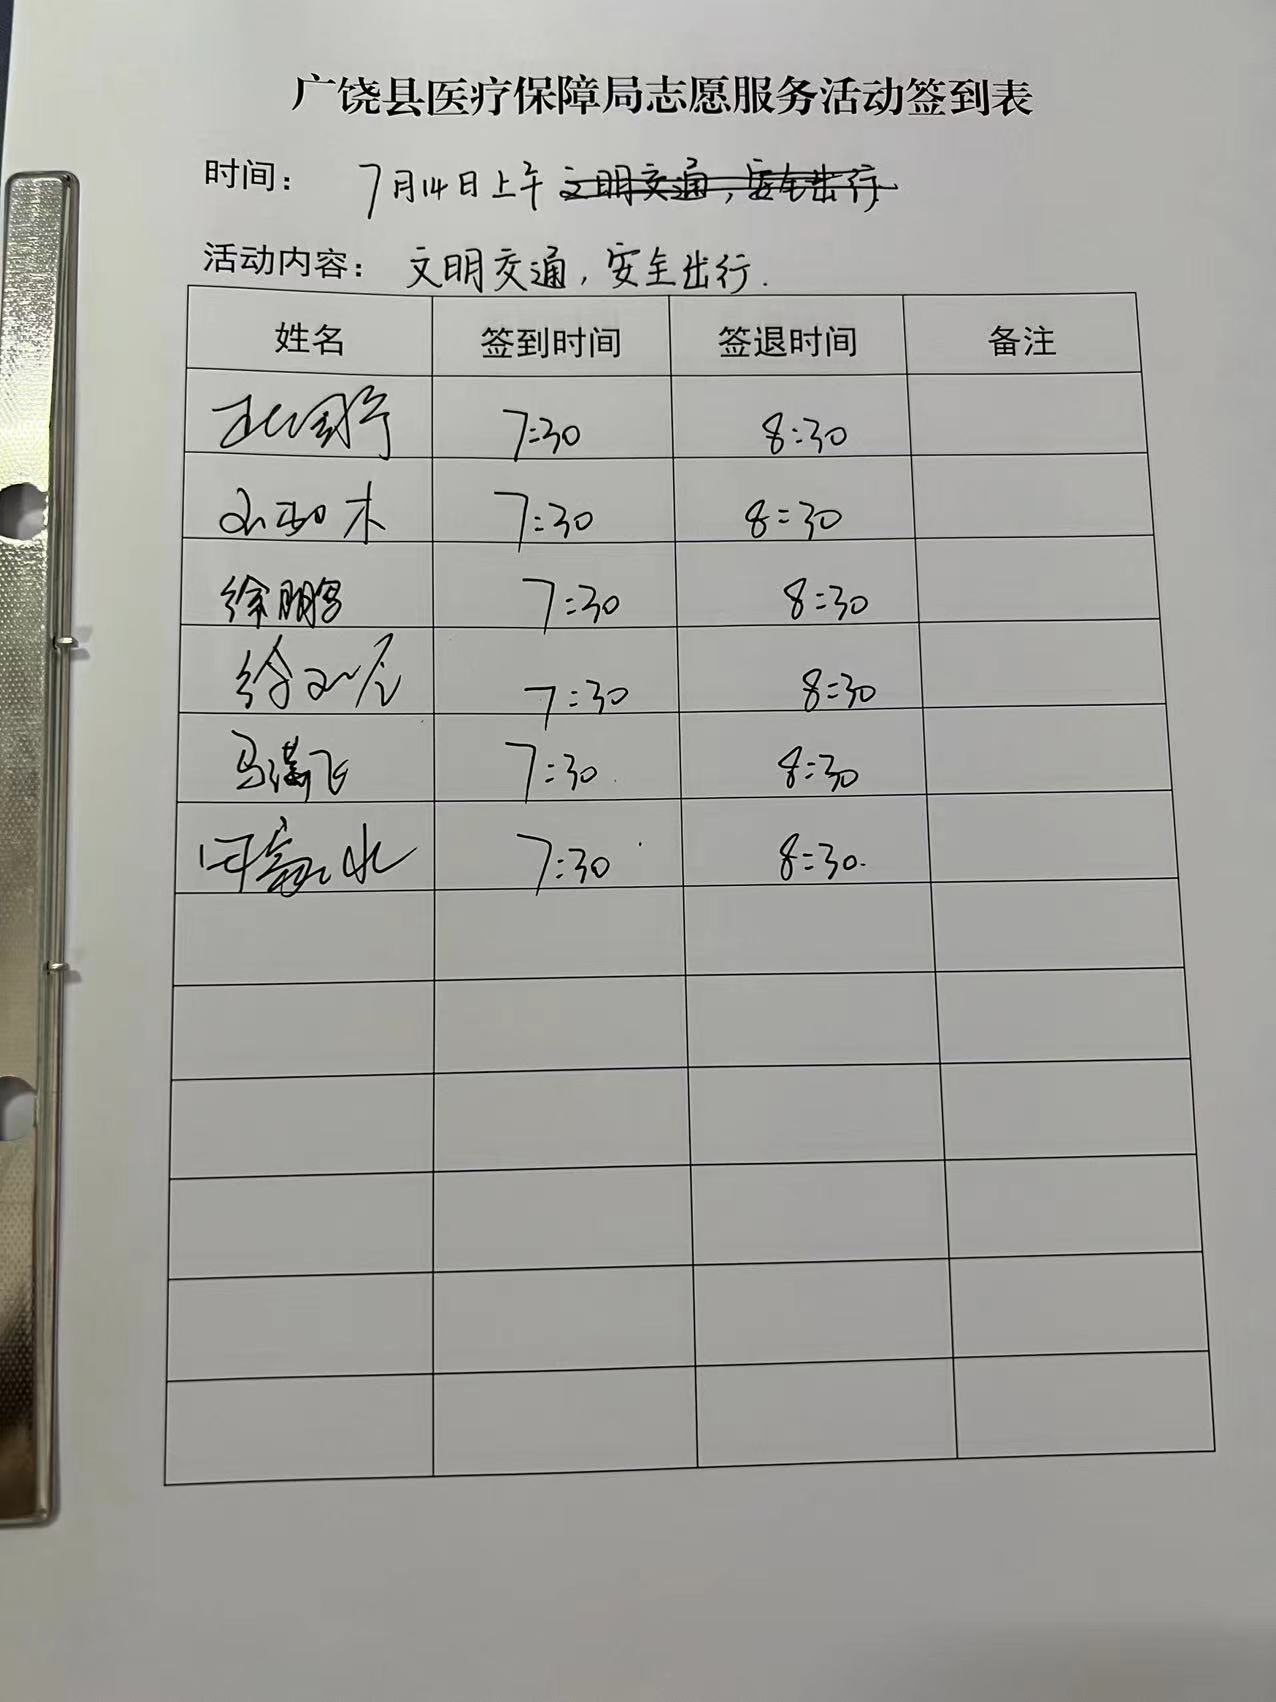 广饶县医疗保障局志愿服务活动签到表
时间： 7月14日上午 文明交通，安全出行
活动内容： 文明交通，安全出行.
姓名 签到时间 签退时间 备注
7:30 8:30
7:30 8:30
徐鹏 7:30 8:30
徐 7:30 8:30
马潇飞 7:30 8:30
7:30 8:30